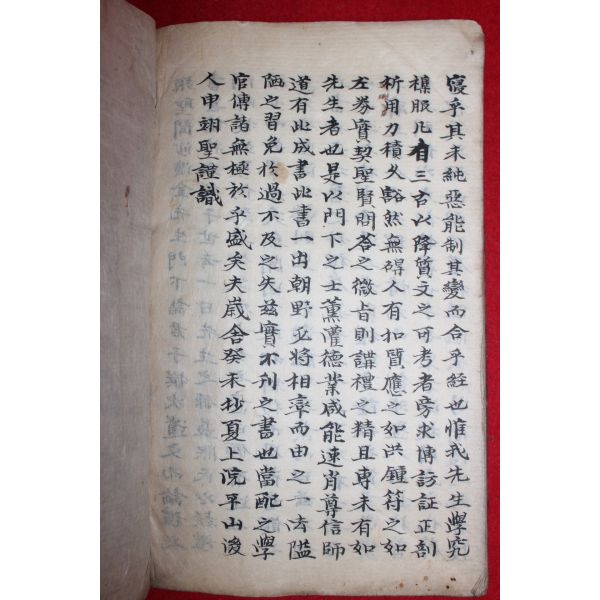 寢乎其未純惡能制其變而合乎經也惟我先生學究
穰服凡百三古以降質文之可考者旁求傳訪証正剖
析用力積久豁然無碍人有扣質應之如洪鍾符之如
左券實契聖賢問答之微旨則講禮之精且專未有如
先生者也是以門下之士薰灌德業咸能速肖尊信師
道有此成書此書一出朝野必將相率而由之一去隘
陋之習免於過不及之失玆實不刋之書也當配之學
官傳諸無極於乎盛矣夫歲舍癸未抄夏上浣平山後
人申翊聖謹識